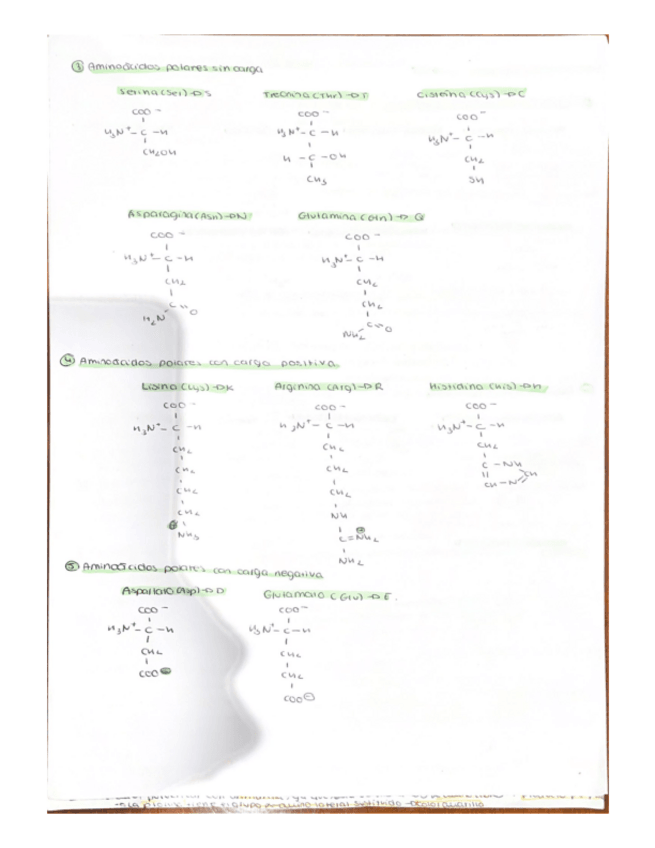 ③ Aminoácidos polares sin carga
Serina (Ser) → S
COO⁻
H₃N⁺– C –H
CH₂OH
Treonina (Thr) → T
COO⁻
H₃N⁺– C –H
H –C –OH
CH₃
Cisteína (Cys) → C
COO⁻
H₃N⁺– C –H
CH₂
SH
Asparagina (Asn) → N
COO⁻
H₃N⁺– C –H
CH₂
H₂N
O
Glutamina (Gln) →
COO⁻
H₃N⁺– C –H
CH₂
CH₂
NH₂
O
④ Aminoácidos polares con carga positiva
Lisina (Lys) → K
COO⁻
H₃N⁺– C –H
CH₂
CH₂
CH₂
CH₂
⊕
NH₃
Arginina (Arg) → R
COO⁻
H₃N⁺– C –H
CH₂
CH₂
CH₂
NH
⊕
C=NH₂
NH₂
Histidina (His) → H
COO⁻
H₃N⁺– C –H
CH₂
C –NH
CH
CH –N
⑤ Aminoácidos polares con carga negativa
Aspartato (Asp) → D
COO⁻
H₃N⁺– C –H
CH₂
COO⊖
Glutamato (Glu) → E.
COO⁻
H₃N⁺– C –H
CH₂
CH₂
COO⊖